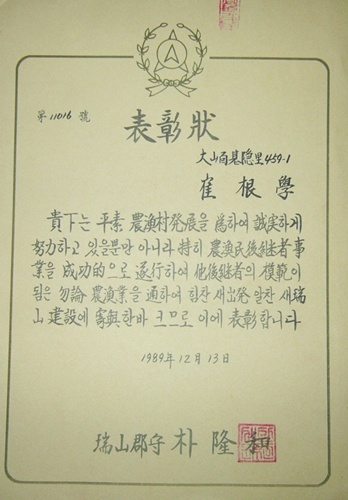 第 11016 號
表彰狀
大山面 隱里 459-1
崔根學
貴下는 平素 農漁村發展을 爲하여 誠実하게
努力하고 있을뿐만 아니라 特히 農漁民後継者 事
業을 成功的으로 遂行하여 他後継者의 模範이
됨은 勿論 農漁業을 通하여 힘찬 새出発 알찬 새瑞
山 建設에 寄與한바 크므로 이에 表彰합니다
1989年 12月 13日
瑞山郡守 朴隆和